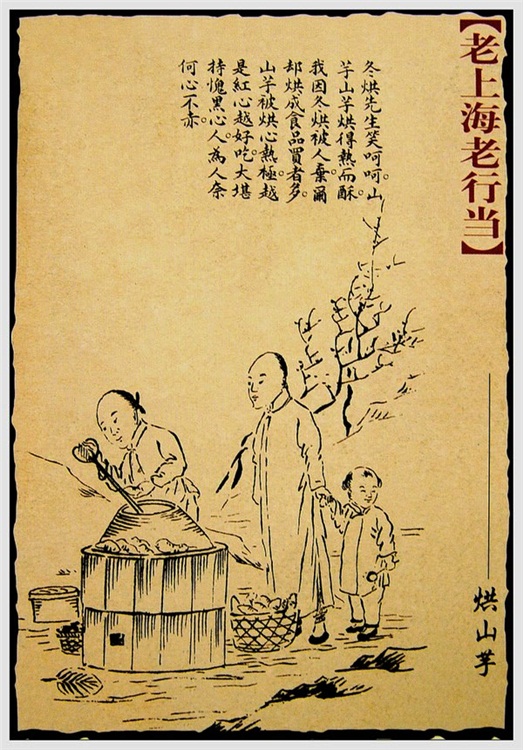 【老上海老行当】
冬烘先生笑呵呵。山
芋山芋烘得熱而酥。
我因冬烘被人棄。爾
却烘成食品買者多。
山芋被烘心熱極。越
是紅心越好吃。大堪
持愧黑心人。為人奈
何心不赤。
烘山芋